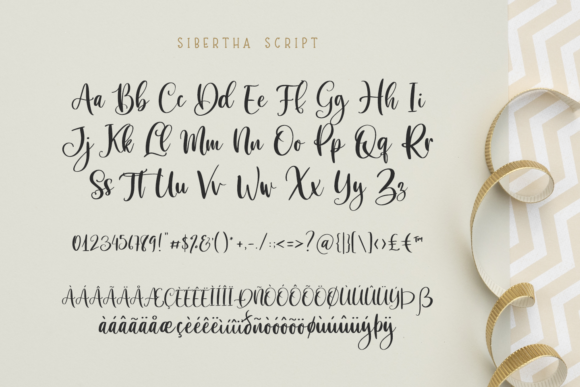 SIBERTHA SCRIPT
Aa Bb Cc Dd Ee Ff Gg Hh Ii
Jj Kk Ll Mm Nn Oo Pp Qq Rr
Ss Tt Uu Vv Ww Xx Yy Zz
0123456789!"#$%&'()*+,-./:;<=>?@{|}[\]<>£€™
ÀÁÂÃÄÅÆÇÈÉÊËÌÍÎÏÐÑÒÓÔÕÖØÙÚÛÜÝÞß
àáâãäåæçèéêëìíîïðñòóôõöøùúûüýþÿ